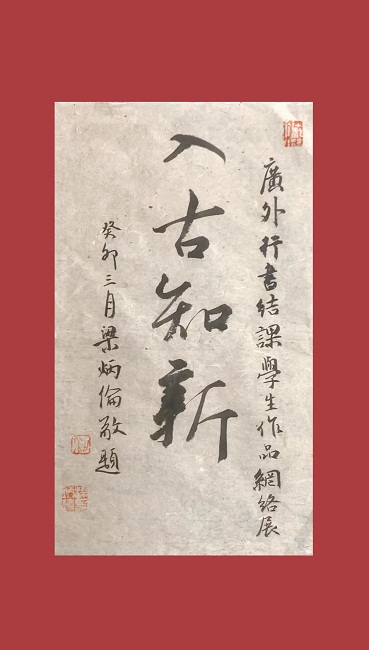 廣外行書結課學生作品網絡展
入古知新
癸卯三月梁炳倫敬題